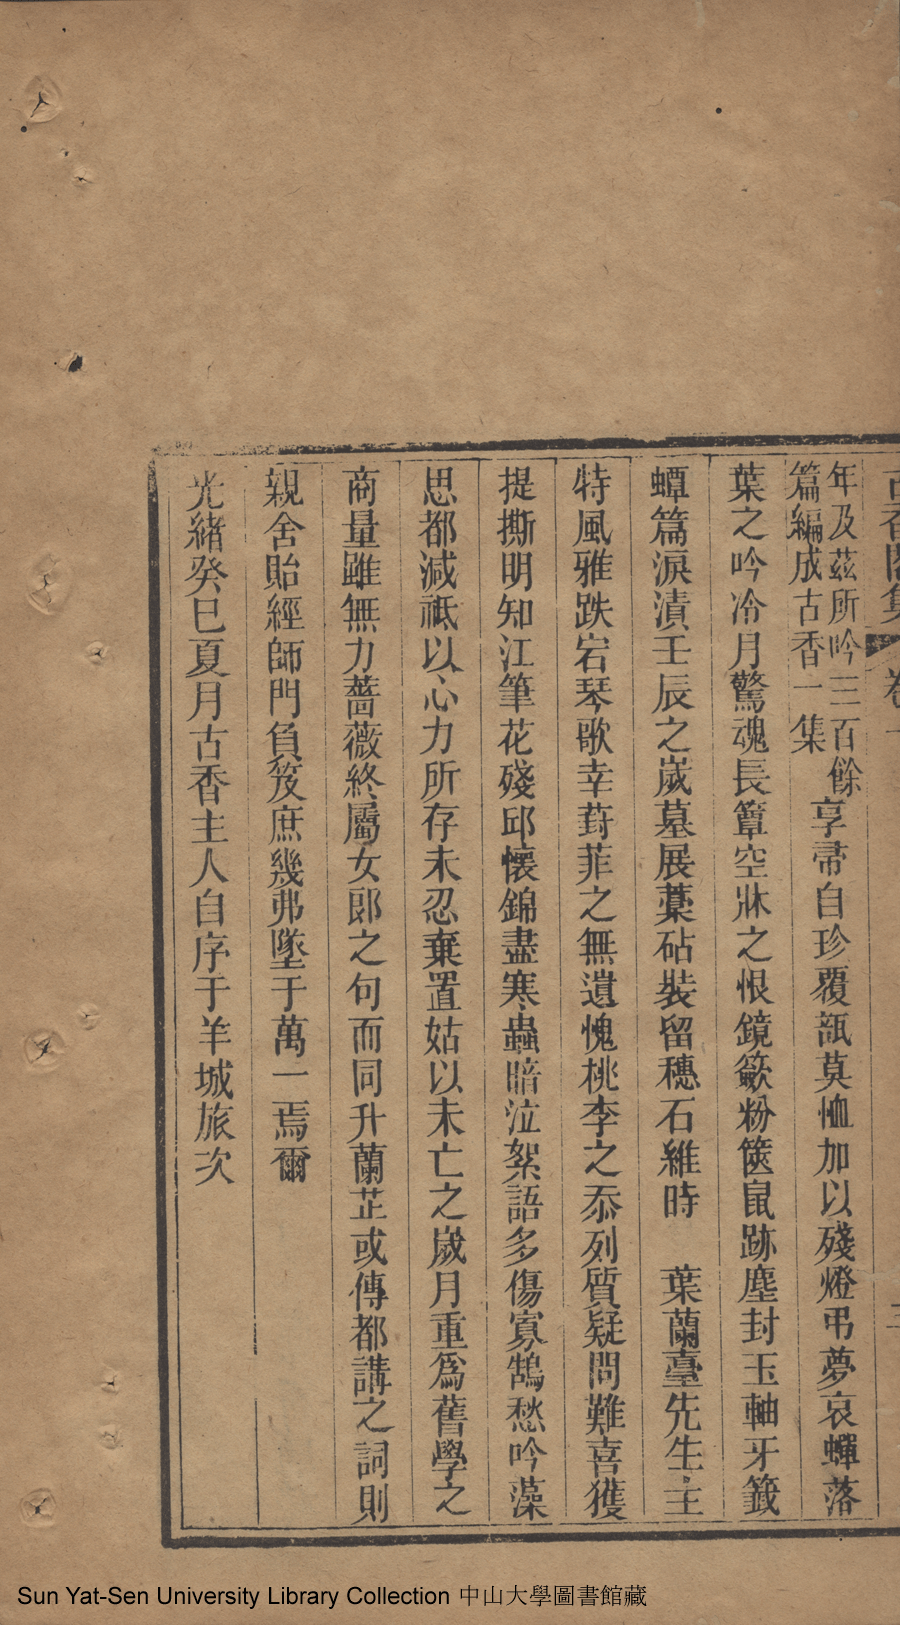 古香閣集 卷一 三
年及茲所吟三百餘
篇編成古香一集
享帚自珍覆瓿莫恤加以殘燈弔夢哀蟬落
葉之吟冷月驚魂長簟空牀之恨鏡籢粉篋鼠跡塵封玉軸牙籤
蟫篇淚漬壬辰之嵗墓展藁砧裝留穗石維時　葉蘭臺先生主
特風雅跌宕琴歌幸葑菲之無遺愧桃李之忝列質疑問難喜獲
提撕明知江筆花殘邱懷錦盡寒蟲暗泣絮語多傷寡鵠愁吟藻
思都減祗以心力所存未忍棄置姑以未亡之嵗月重爲舊學之
商量雖無力薔薇終屬女郎之句而同升蘭芷或傳都講之詞則
親舍貽經師門負笈庶幾弗墜于萬一焉爾
光緒癸巳夏月古香主人自序于羊城旅次
Sun Yat-Sen University Library Collection 中山大學圖書館藏